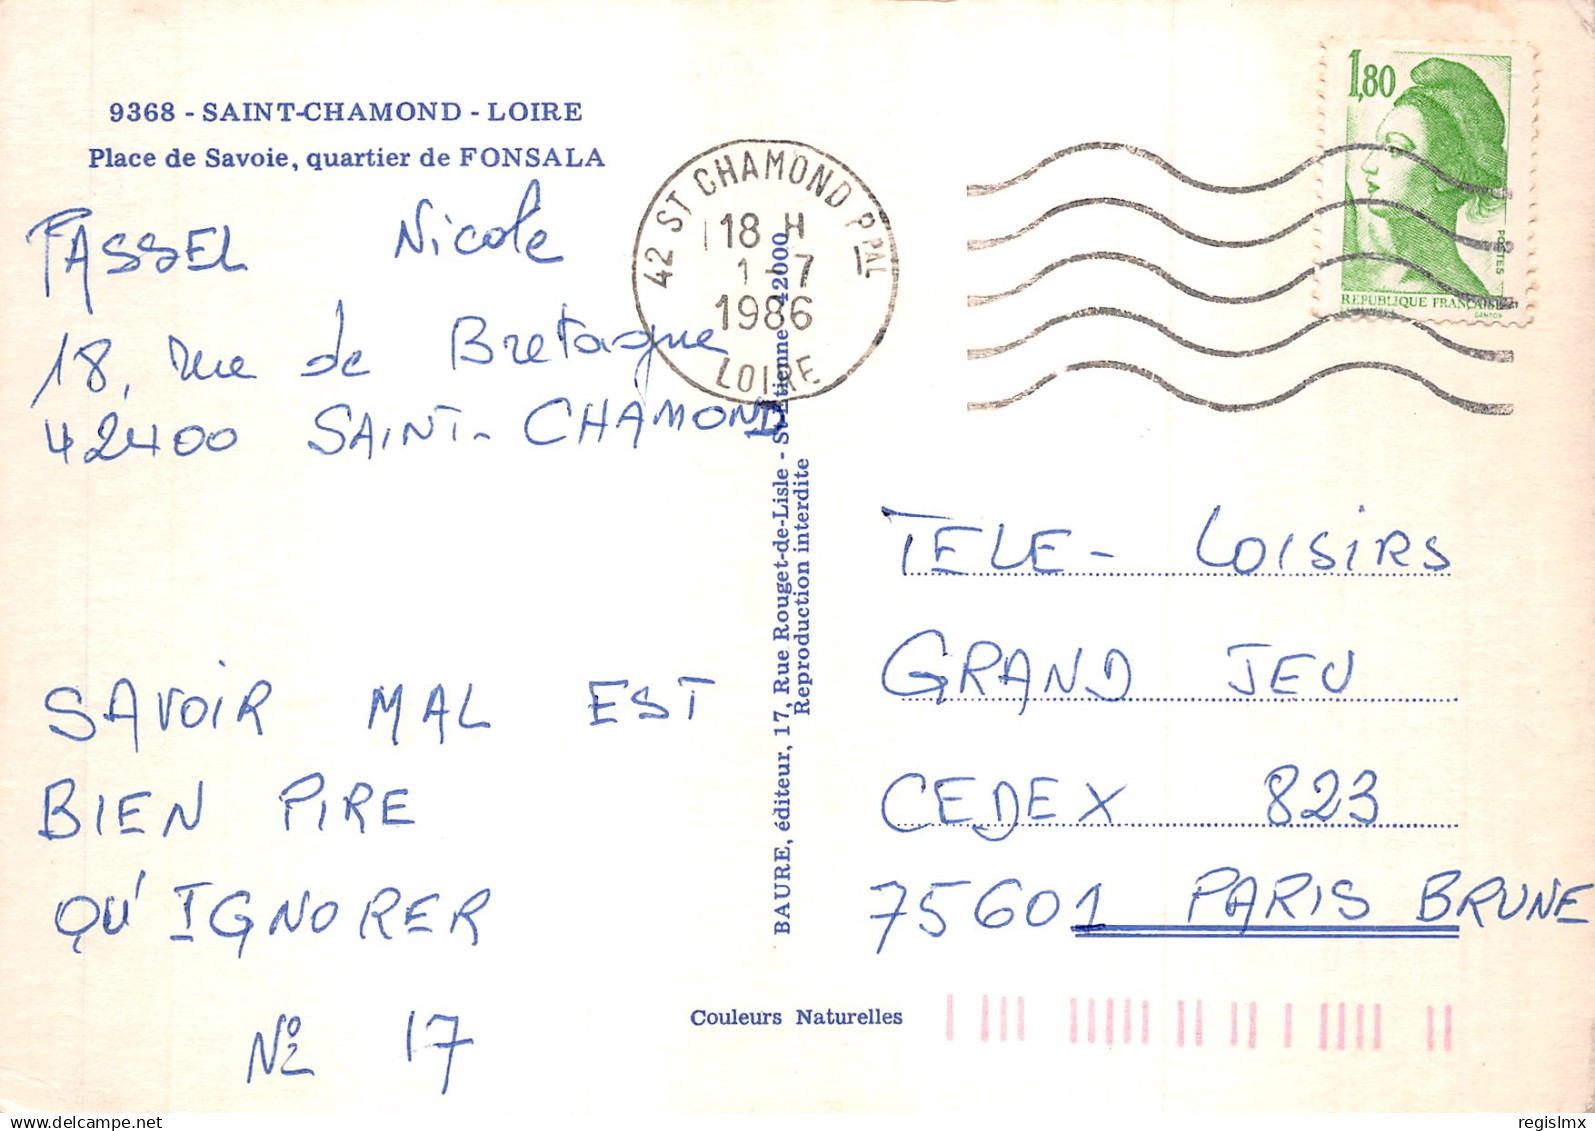 9368 - SAINT-CHAMOND - LOIRE
Place de Savoie, quartier de FONSALA
FASSEL Nicole
18, rue de Bretagne
42400 SAINT-CHAMOND
SAVOIR MAL EST
BIEN PIRE
QU'IGNORER
No 17
42 ST CHAMOND PPAL
18 H
1-7
1986
LOIRE
BAURE, éditeur, 17, Rue Rouget-de-Lisle - St-Etienne 42000
Reproduction interdite
Couleurs Naturelles
1,80
POSTES
REPUBLIQUE FRANÇAISE
GANDON
TELE-LOISIRS
GRAND JEU
CEDEX 823
75601 PARIS BRUNE
delcampe.net
regislmx